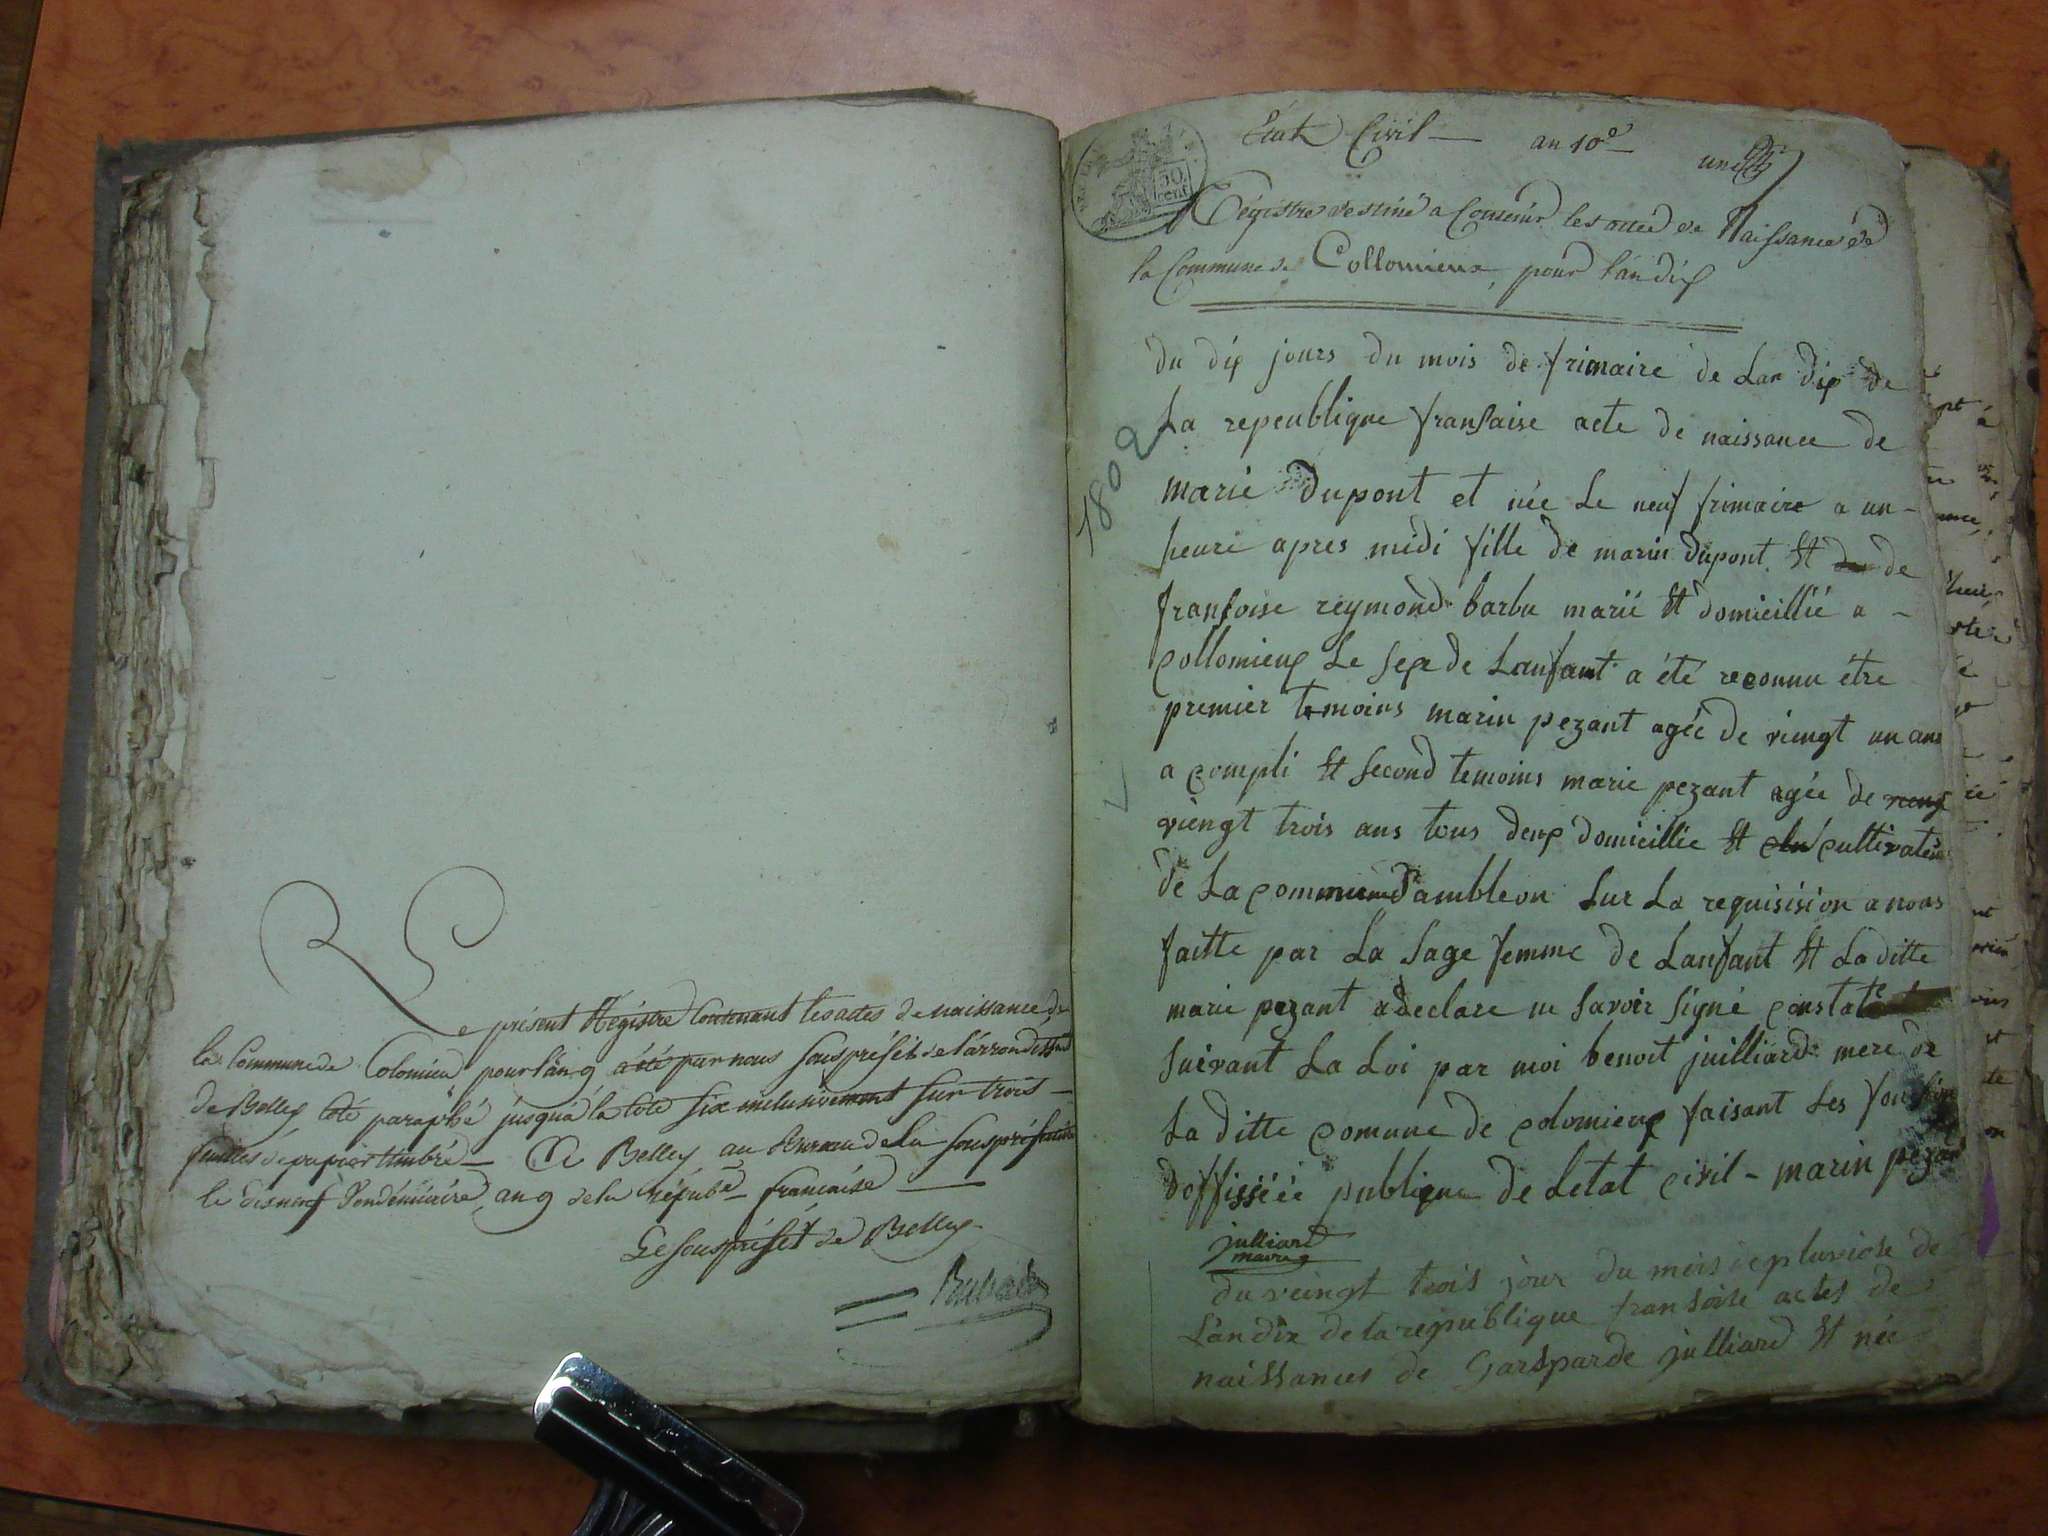 Le présent Registre Contenant les actes de naissance de
la Commune de Colomieu pour l'an 9 a été par nous sous préfet de l'arrondissent
de Belley coté paraphé jusqu'à la cote six inclusivement sur trois
feuilles de papier timbré - A Belley au Bureau de la souspréfecture
le disneuf Vendémiaire an 9 de la répube française
Le souspréfet de Belley
Etat Civil - an 10e
un
30
cent
Régistre destiné a Contenir les actes de Naissance de
la Commune de Collomieux pour l'an dix
1802
du dix jours du mois de frimaire de Lan dix de
La repeublique fransaise acte de naissance de
marie dupont et née Le neuf frimaire a un-
heure apres midi fille de marin dupont Et de
fransoise reymond barbu marié Et domicillié a -
collomieux Le sexe de Lanfant a été reconnu étre
premier temoins marin pezant agée de viengt un ans
a compli Et second temoins marie pezant agée de
viengt trois ans tous deux domicillie Et cultivateur
de La commune d'ambleon sur La requisision a nous
faitte par La sage femme de Lanfant Et La ditte
marie pezant a declare ne savoir signé constate
suivant La Loi par moi benoit juilliard mere de
La ditte comune de colomieux faisant Les fonksion
doffissiéé publique de Letat civil - marin pezant
julliard
maire
du veingt trois jour du mois de pluviose de
L'an dix de la république fransoise actes de
naissances de Garsparde julliard Et née